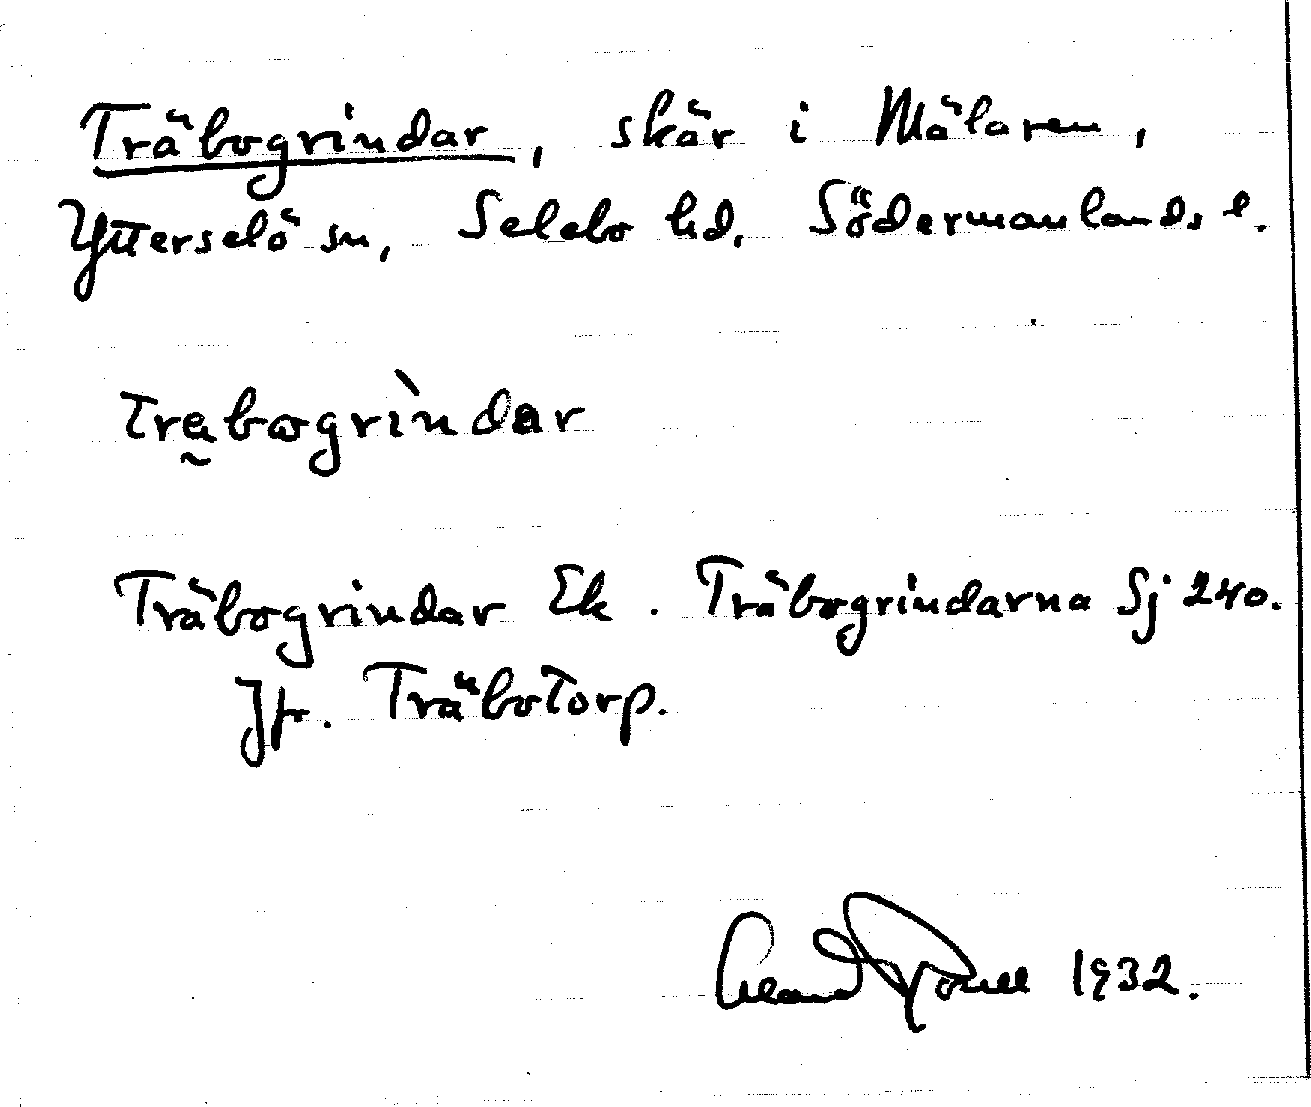 Träbogrindar, skär i Mälaren,
Ytterselö sn, Selebo hd, Södermanlands l.
Träbogrindar Ek. Träbogrindarna Sj 240.
Jfr. Träbotorp.
1932.